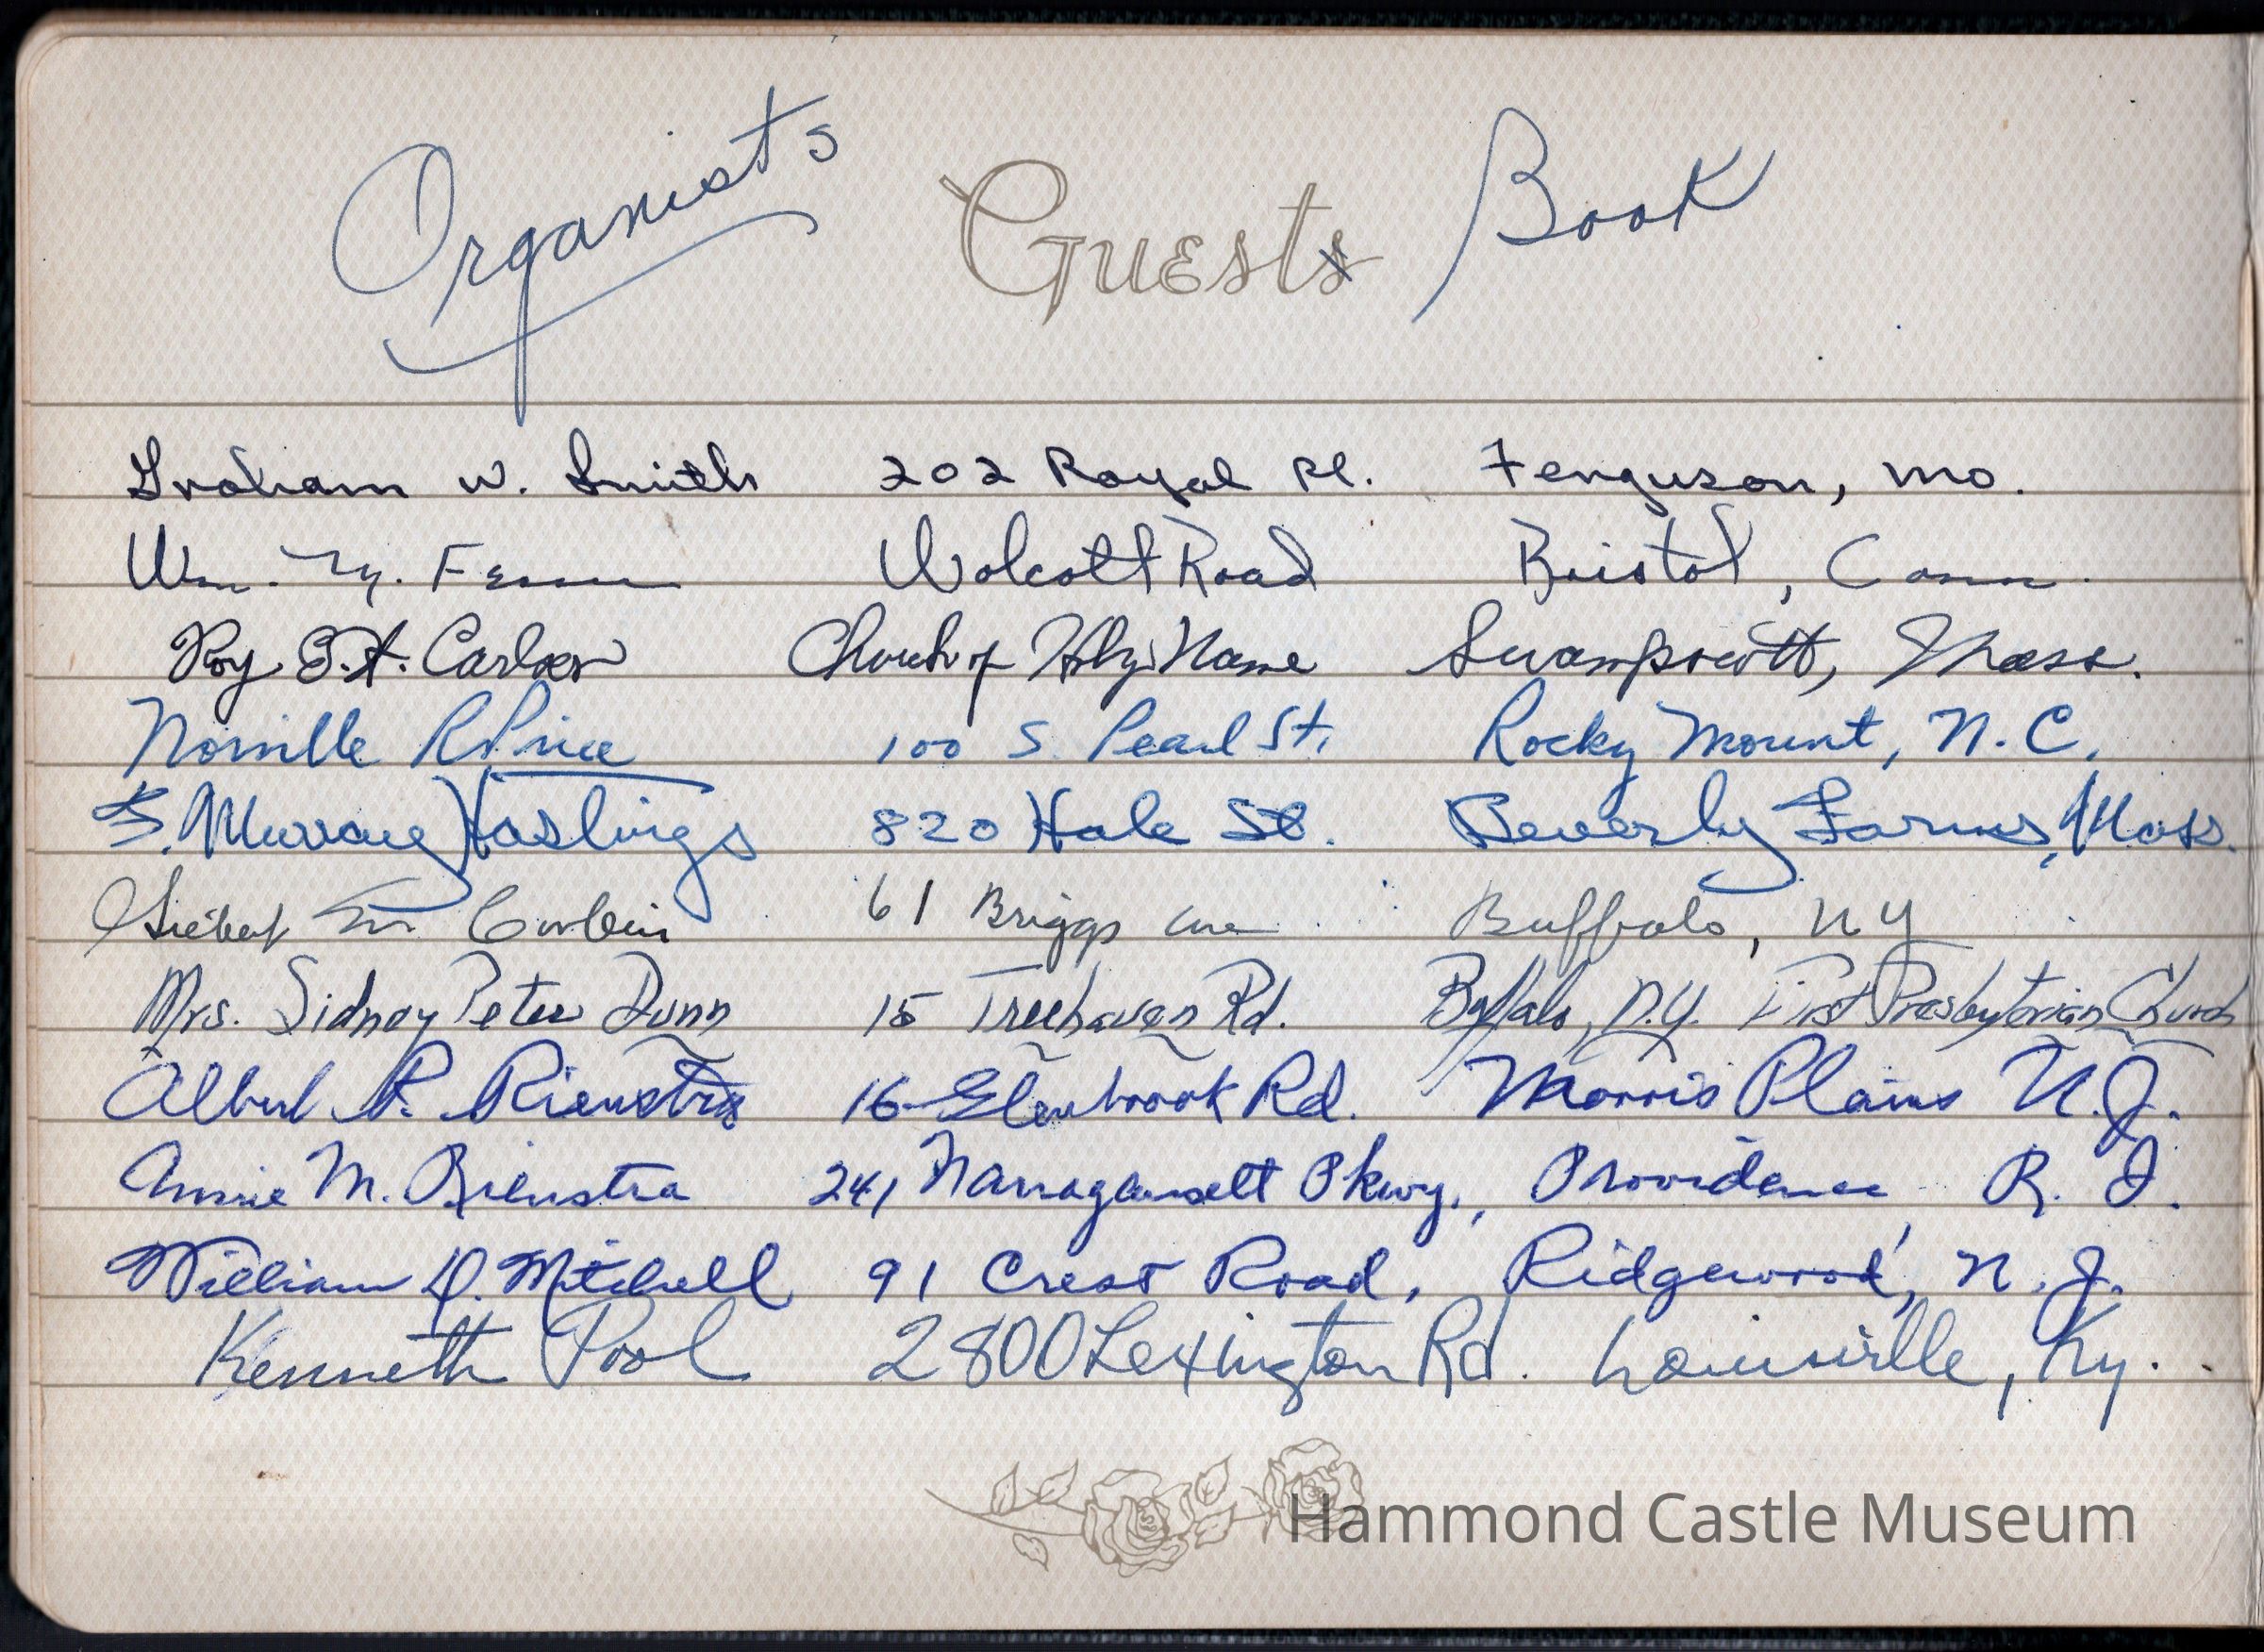 Organists Guests Book
Graham W. Smith 202 Royal Pl. Ferguson, Mo.
Wm. Wolcott Road Bristol, Conn.
Roy E. A. Carlson Church of Holy Name Swampscott, Mass.
Norville R. Price 100 S. Pearl St. Rocky Mount, N.C.
S. Murray Hastings 820 Hale St. Beverly Farms, Mass.
Corbin 61 Briggs Ave Buffalo, NY
Mrs. Sidney Peter Dunn 15 Treehaven Rd. Buffalo, N.Y. First Presbyterian Church
Albert R. Rienstra 16 Glenbrook Rd. Morris Plains N.J.
Annie M. Rienstra 241 Narragansett Pkwy., Providence R. I.
William D. Mitchell 91 Crest Road, Ridgewood, N. J.
Kenneth Pool 2800 Lexington Rd. Louisville, Ky.
Hammond Castle Museum